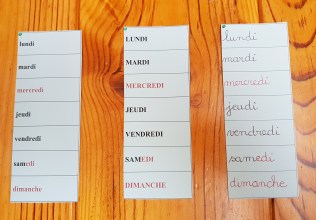 lundi
mardi
mercredi
jeudi
vendredi
samedi
dimanche
LUNDI
MARDI
MERCREDI
JEUDI
VENDREDI
SAMEDI
DIMANCHE
lundi
mardi
mercredi
jeudi
vendredi
samedi
dimanche